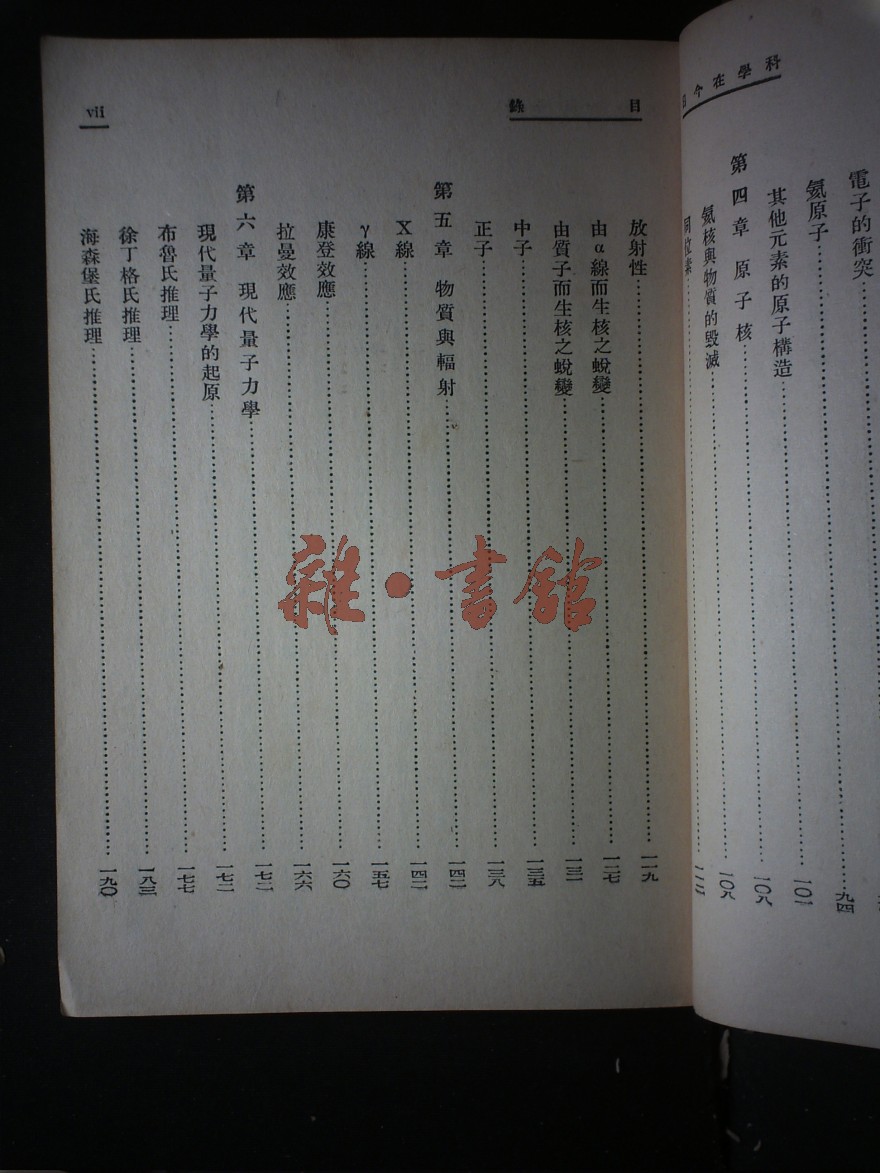 科學在今日
電子的衝突……九四
氦原子……一〇一
其他元素的原子構造……一〇八
第四章 原子核……一〇八
氦核與物質的毀滅……一一二
同位素……
目錄
vii
放射性……一一九
由α線而生核之蛻變……一二七
由質子而生核之蛻變……一三一
中子……一三五
正子……一三八
第五章 物質與輻射……一四二
X線……一四二
γ線……一五七
康登效應……一六〇
拉曼效應……一六六
第六章 現代量子力學……一七二
現代量子力學的起原……一七二
布魯氏推理……一七七
徐丁格氏推理……一八三
海森堡氏推理……一九〇
雜·書館